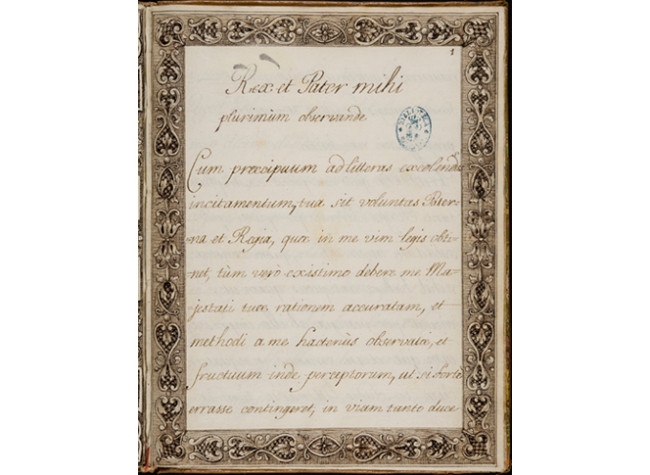 1
Ræx et Pater mihi
plurimùm observande
Cum præcipuum ad litteras excolendas
incitamentum, tua sit voluntas Pater-
na et Regia, quæ in me vim legis obti-
-net, tùm vero existimo debere me Ma-
-jestati tuæ rationem accuratam, et
methodi a me hactenùs observatæ, et
fructuum inde perceptorum, ut si forte
errasse contingeret, in viam tanto duce